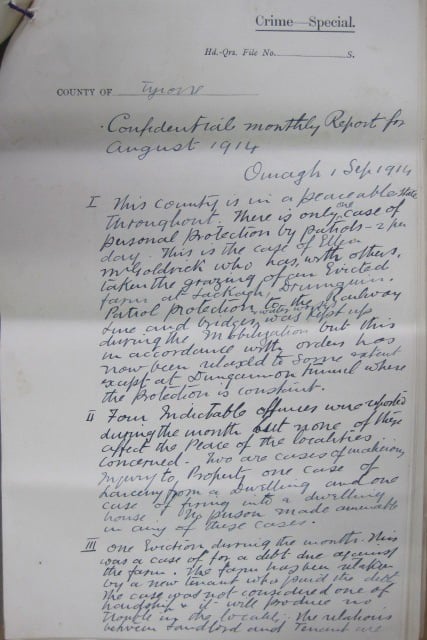 Crime—Special.
Hd.-Qrs. File No. S.
COUNTY OF Tyrone
Confidential monthly Report for
August 1914
Omagh 1 Sep 1914
I This county is in a peaceable state
throughout. There is only one case of
personal Protection by patrols - 2 per
day. This is the case of Ellen
McGoldrick who has, with others,
taken the grazing of an Evicted
farm at Lackagh, Drumquin.
Patrol protection to the Railway
line and bridges was kept up
during the Mobilization but this
in accordance with orders has
now been relaxed to some extent
except at Dungannon tunnel where
the Protection is constant.
II Four Indictable offences were reported
during the month but none of these
affect the Peace of the localities
concerned. Two are cases of malicious
Injury to Property one case of
larceny from a Dwelling and one
case of firing into a dwelling
house. No person made amenable
in any of these cases.
III one Eviction during the month. This
was a case of for a debt due against
the farm. The farm has been retaken
by a new tenant who paid the debt
The case was not considered one of
hardship & it will produce no
trouble in the locality. The relations
between Landlord and Tenant are